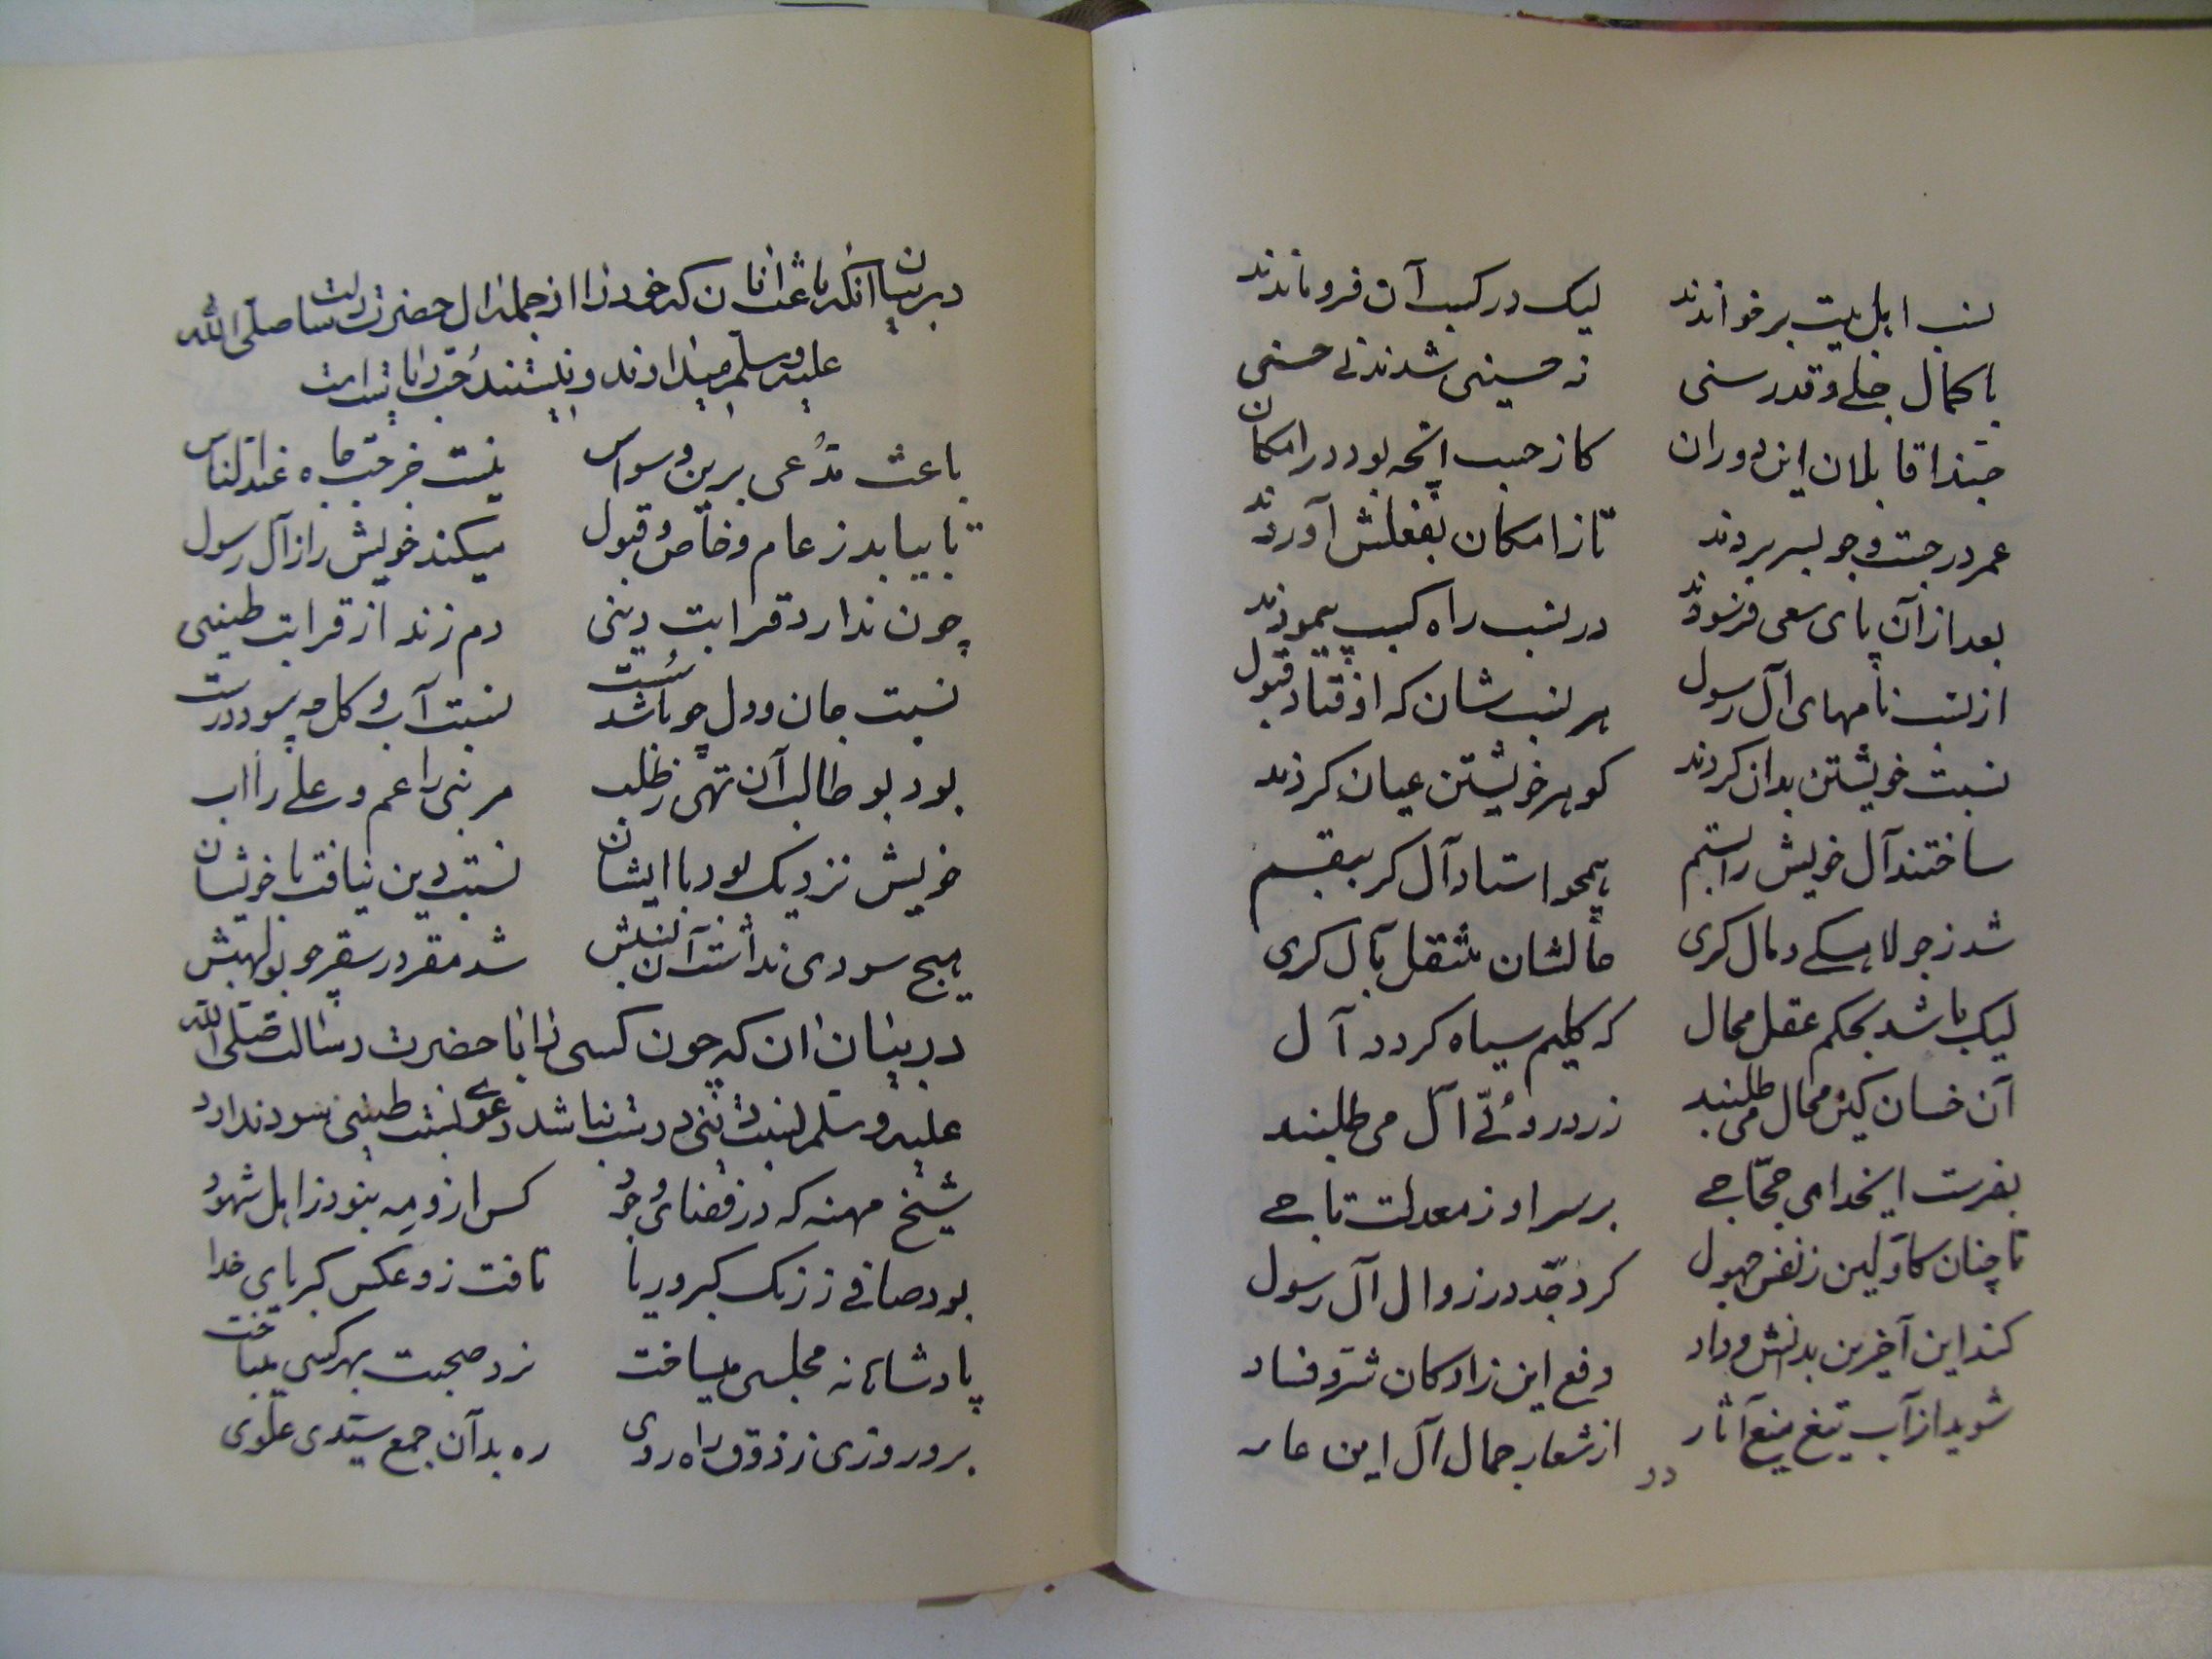 نسب اهل بیت برخواندند لیک در کسب آن فروماندند
با کمال جلی و قدر سنی نه حسینی شدند نی حسنی
حبذا قابلان این دوران کز حسب انچه بود در امکان
عمر در جست و جو بسر بردند تا ز امکان بفعلش آوردند
بعد از آن پای سعی فرسودند در نسب راه کسب پیمودند
از نسب نامهای آل رسول هر نسب شان که اوفتاد قبول
نسبت خویشتن بدان کردند گوهر خویشتن عیان کردند
ساختند آل خویش را بستم همچو استاد آل گر ببقم
شد ز جولاهکی و مال گری حالشان منتقل بآل گری
لیک باشد بحکم عقل محال که گلیم سیاه گردد آل
آن خسان کین محال می طلبند زردروئی ز آل می طلبند
بفرست ایخدای حجاجی بر سر او ز معدلت تاجی
تا چنان کاولین ز نفس جهول کرد جد در زوال آل رسول
کند این آخرین بدانش و داد دفع این زادگان شر و فساد
شوید از آب تیغ منیع آثار از شعار جمال آل این عار
در بیان انکه باعث انان که خود را از جمله ال حضرت رسالت صلی الله
علیه وسلم میدارند و نیستند حب ... است
باعث مدعی برین وسواس نیست جز حب جاه عند الناس
تا بیابد ز عام و خاص قبول میکند خویش را ز آل رسول
چون ندارد قرابت دینی دم زند از قرابت طینی
نسبت جان و دل چو باشد سست نسبت آب و گل چه سود درست
بود بو طالب آن تهی ز طلب مر نبی را عم و علی را اب
خویش نزدیک بود با ایشان نسبت دین نیافت با خویشان
هیچ سودی نداشت آن نسبش شد مقر در سقر چو بولهبش
در بیان ان که چون کسی را با حضرت رسالت صلی الله
علیه وسلم نسبت دینی درست نباشد دعوی نسبت طینی سود ندارد
شیخ مهنه که در فضای وجود کس ازو مه نبود ز اهل شهود
بود صافی ز زنگ کبر و ریا تافت زو عکس کبریای خدا
پادشاهانه مجلسی میساخت نرد صحبت بهر کسی میباخت
برد روزی ز ذوق راه روی ره بدآن جمع سیدی علوی